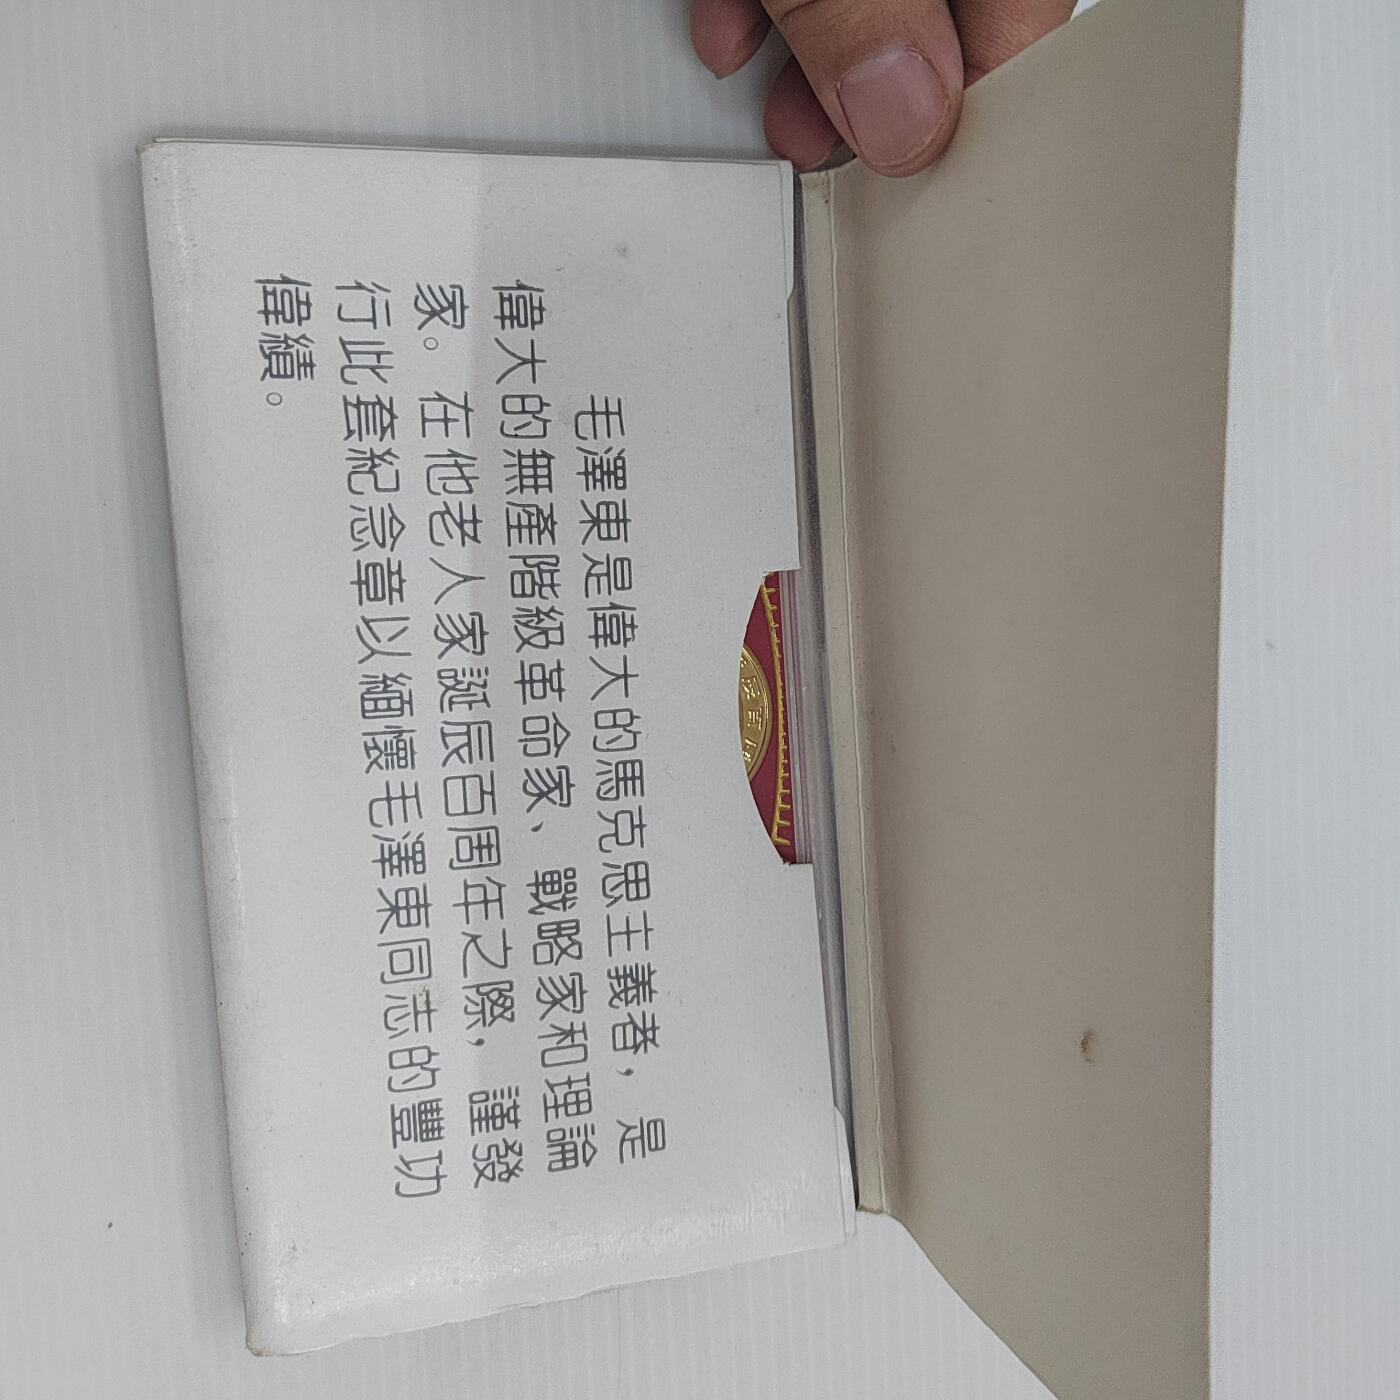 毛澤東是偉大的馬克思主義者，是
偉大的無產階級革命家、戰略家和理論
家。在他老人家誕辰百周年之際，謹發
行此套紀念章以緬懷毛澤東同志的豐功
偉績。